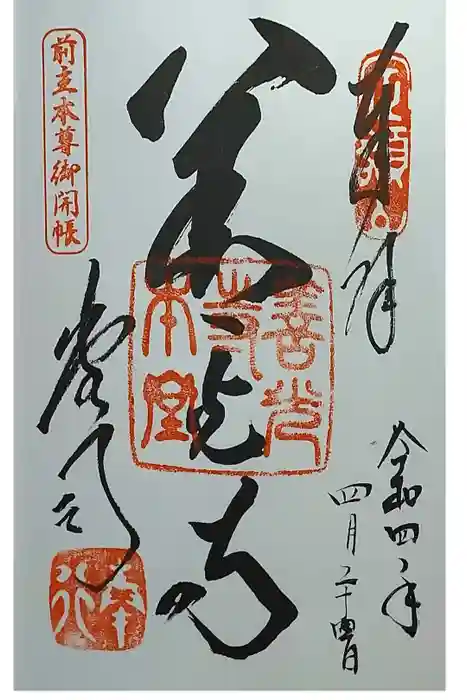 奉拝
定額山
令和四年
四月二十四日
善光寺
善光寺本堂
前立本尊御開帳